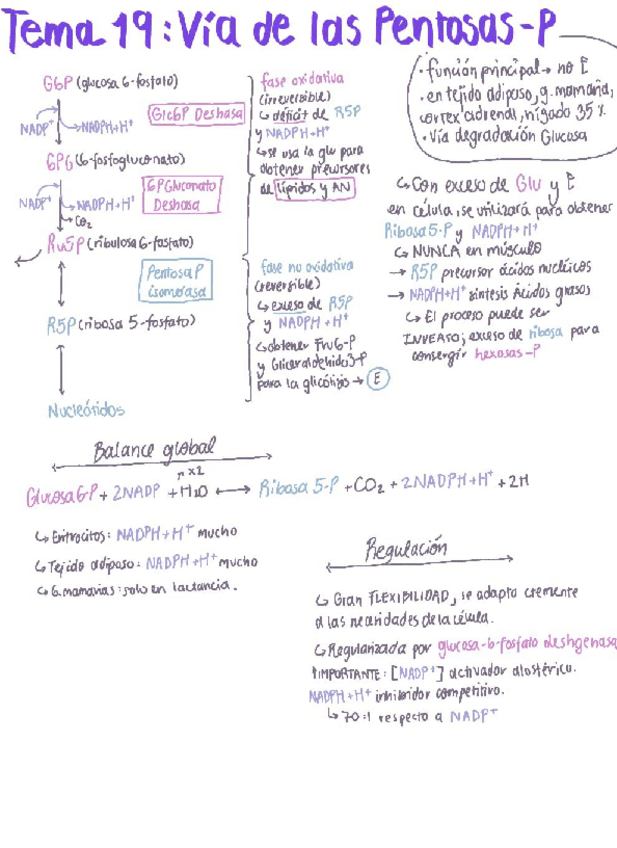 Tema 19: Vía de las Pentosas-P
• función principal → no E
• en tejido adiposo, g. mamaria,
cortex adrenal, hígado 35%
• Vía degradación Glucosa
G6P (glucosa 6-fosfato)
NADP+
NADPH+H+
Glc6P Deshasa
6PG (6-fosfogluconato)
NADP+
NADPH+H+
CO2
6PGluconato
Deshasa
Ru5P (ribulosa 6-fosfato)
Pentosa P
isomerasa
R5P (ribosa 5-fosfato)
Nucleótidos
fase oxidativa
(irreversible)
↳ déficit de R5P
y NADPH+H+
↳ se usa la glu para
obtener precursores
de lípidos y AN
fase no oxidativa
(reversible)
↳ exceso de R5P
y NADPH+H+
↳ obtener Fru6-P
y Gliceraldehído3-P
para la glicólisis → E
↳ Con exceso de Glu y E
en célula, se utilizará para obtener
Ribosa 5-P y NADPH+H+
↳ NUNCA en músculo
→ R5P precursor ácidos nucléicos
→ NADPH+H+ síntesis ácidos grasos
↳ El proceso puede ser
INVERSO; exceso de ribosa para
conseguir hexosas-P
Balance global
x2
Glucosa6-P + 2NADP + H2O ↔ Ribosa 5-P + CO2 + 2NADPH+H+ + 2H
↳ Eritrocitos: NADPH+H+ mucho
↳ Tejido adiposo: NADPH+H+ mucho
↳ G. mamarias: solo en lactancia.
Regulación
↳ Gran FLEXIBILIDAD, se adapta
a las necesidades de la célula.
↳ Regularizada por glucosa-6-fosfato
IMPORTANTE: [NADP+] activador alostérico.
NADPH+H+ inhibidor competitivo.
↳ 70:1 respecto a NADP+